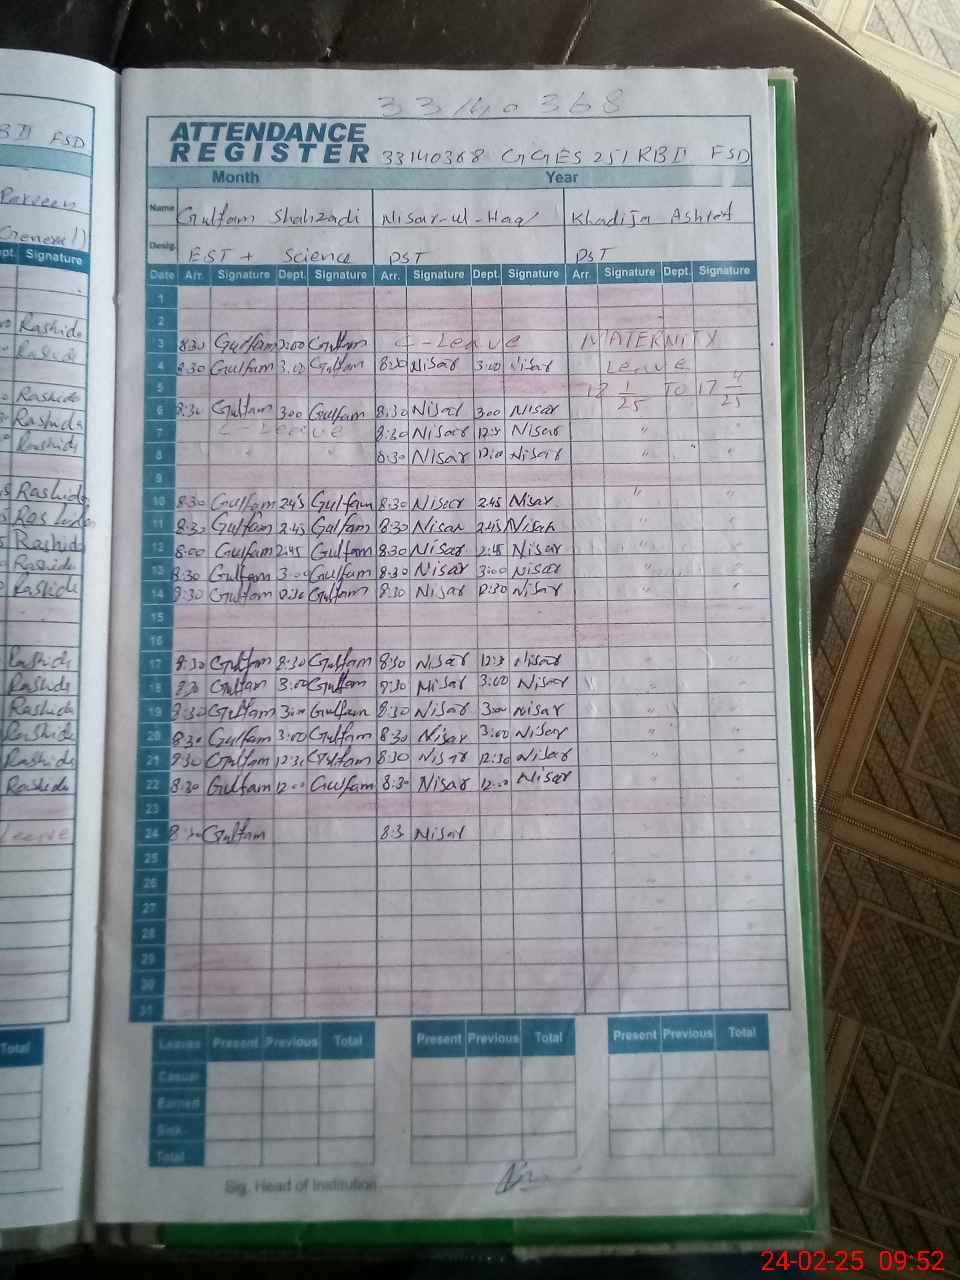 33140368
ATTENDANCE
REGISTER 33140368 GGES 251 RB II FSD
Month Year
Name Gulfam Shahzadi Nisar-ul-Haq Khadija Ashraf
Desig. EST + Science PST PST
Date Arr. Signature Dept. Signature Arr. Signature Dept. Signature Arr. Signature Dept. Signature
1
2
3 8:30 Gulfam 3:00 Gulfam C-Leave MATERNITY
4 8:30 Gulfam 3:00 Gulfam 8:30 Nisar 3:00 Nisar Leave
5 1/25 TO 17 4/25
6 8:30 Gulfam 3:00 Gulfam 8:30 Nisar 3:00 Nisar
7 C-Leave 8:30 Nisar 12:30 Nisar " "
8 8:30 Nisar 12:00 Nisar " "
9
10 8:30 Gulfam 2:45 Gulfam 8:30 Nisar 2:45 Nisar " "
11 8:30 Gulfam 2:45 Gulfam 8:30 Nisar 2:45 Nisar " "
12 8:00 Gulfam 2:45 Gulfam 8:30 Nisar 2:45 Nisar " "
13 8:30 Gulfam 3:00 Gulfam 8:30 Nisar 3:00 Nisar " "
14 8:30 Gulfam 12:30 Gulfam 8:30 Nisar 12:30 Nisar " "
15
16
17 8:30 Gulfam 8:30 Gulfam 8:30 Nisar 12:3 Nisar " "
18 Gulfam 3:00 Gulfam Nisar 3:00 Nisar " "
19 8:30 Gulfam 3:00 Gulfam 8:30 Nisar 3:00 Nisar " "
20 8:30 Gulfam 3:00 Gulfam 8:30 Nisar 3:00 Nisar " "
21 8:30 Gulfam 12:30 Gulfam 8:30 Nisar 12:30 Nisar " "
22 8:30 Gulfam 12:00 Gulfam 8:30 Nisar 12:00 Nisar " "
23
24 8:30 Gulfam 8:3 Nisar " "
25 " "
26 " "
27 " "
28 " "
29
30
31
Leaves Present Previous Total Present Previous Total Present Previous Total
Casual
Earned
Sick
Total
Sig. Head of Institution
24-02-25 09:52